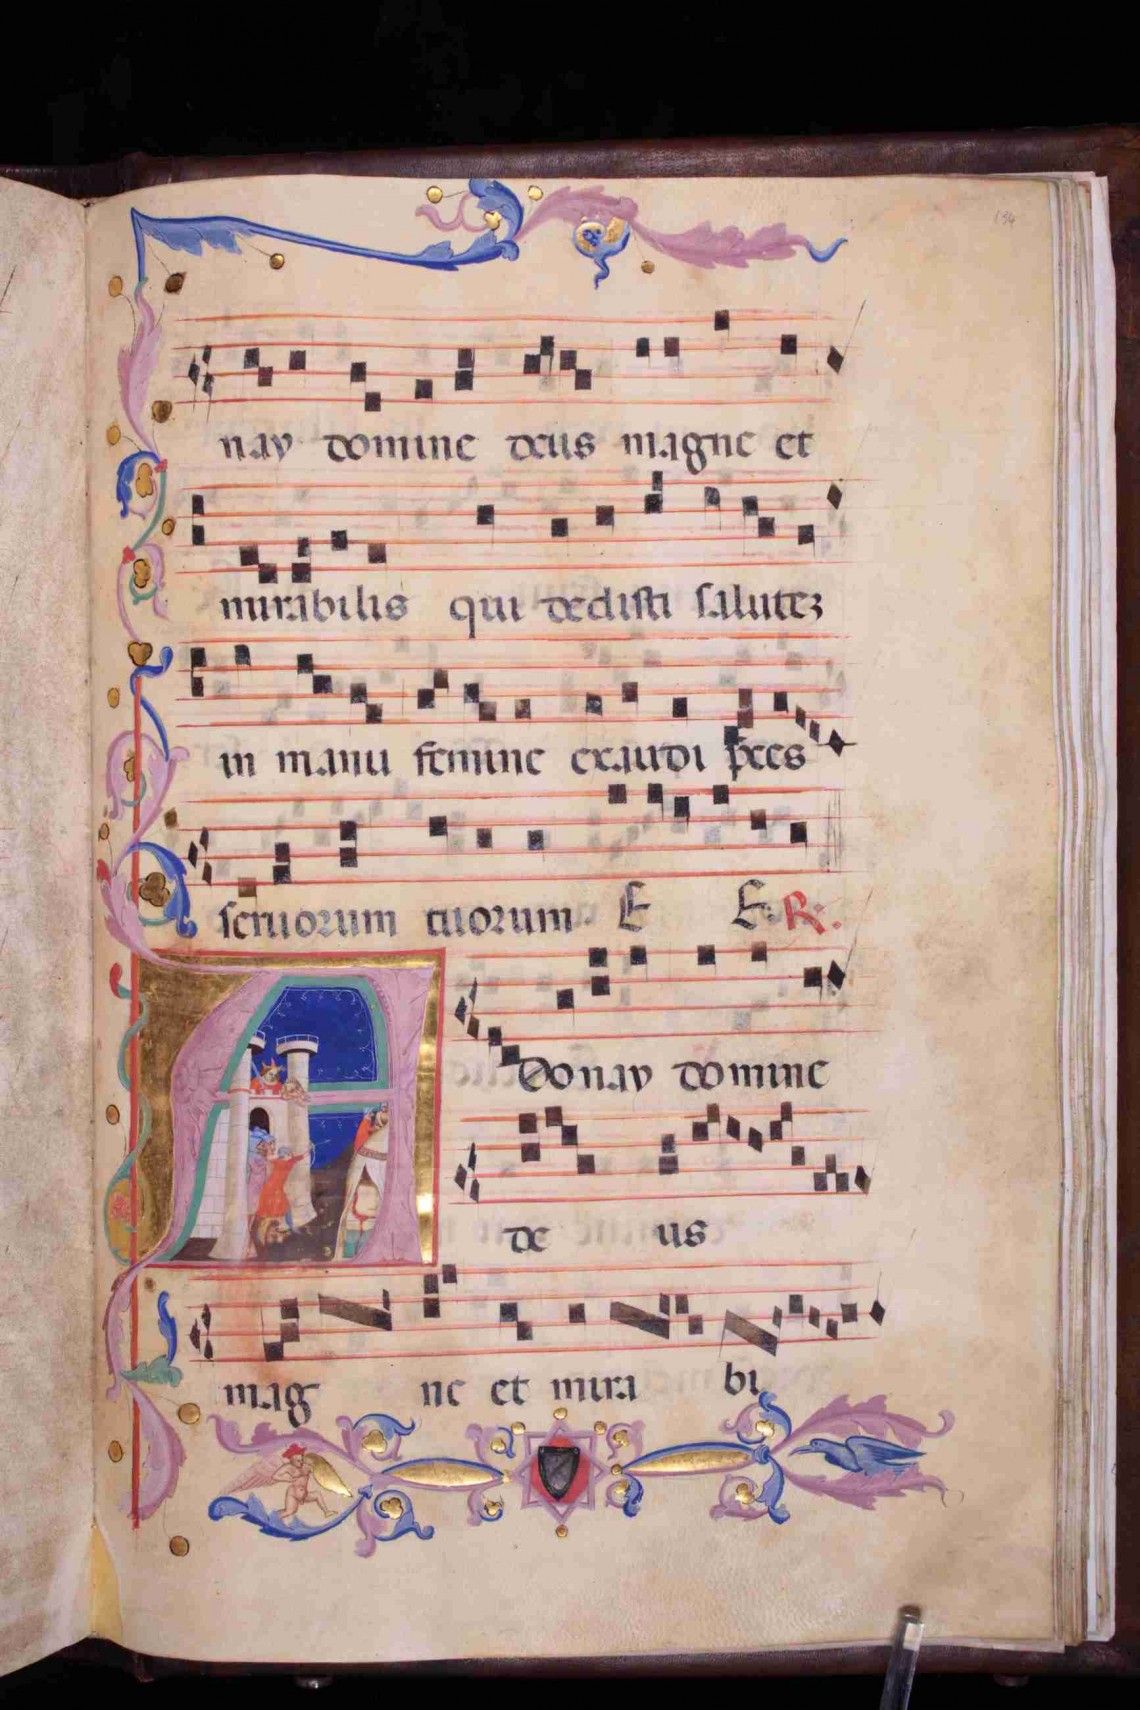 194
nay domine deus magne et
mirabilis qui dedisti saluteʒ
in manu femine exaudi p̄ces
seruorum tuorum E E. R.
Adonay domine
de us
mag ne et mira bi